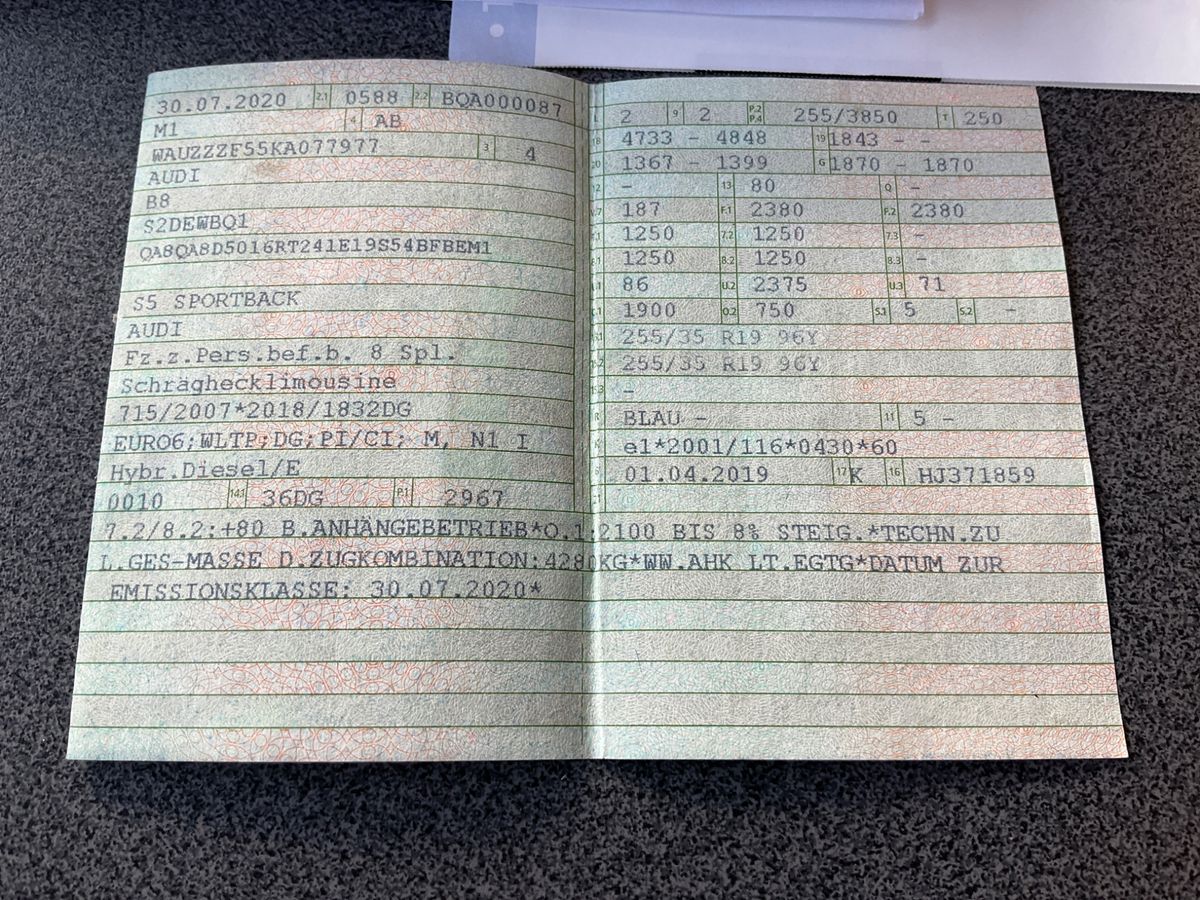 30.07.2020 2.1 0588 2.2 BQA000087
M1 4 AB
WAUZZZF55KA077977 3 4
AUDI
B8
S2DEWBQ1
QA8QA8D5016RT241E19S54BFBEM1
S5 SPORTBACK
AUDI
Fz.z.Pers.bef.b. 8 Spl.
Schräghecklimousine
715/2007*2018/1832DG
EURO6;WLTP;DG;PI/CI; M, N1 I
Hybr.Diesel/E
0010 14.1 36DG P.1 2967
2 9 2 P.2 P.4 255/3850 T 250
18 4733 - 4848 19 1843 - -
20 1367 - 1399 G 1870 - 1870
12 - 13 80 Q -
V.7 187 F.1 2380 F.2 2380
7.1 1250 7.2 1250 7.3 -
8.1 1250 8.2 1250 8.3 -
U.1 86 U.2 2375 U.3 71
O.1 1900 O.2 750 S.1 5 S.2 -
15.1 255/35 R19 96Y
15.2 255/35 R19 96Y
15.3 -
R BLAU - 11 5 -
K e1*2001/116*0430*60
6 01.04.2019 17 K 16 HJ371859
7.2/8.2:+80 B.ANHÄNGEBETRIEB*O.1:2100 BIS 8% STEIG.*TECHN.ZU
L.GES-MASSE D.ZUGKOMBINATION:4280KG*WW.AHK LT.EGTG*DATUM ZUR
EMISSIONSKLASSE: 30.07.2020*